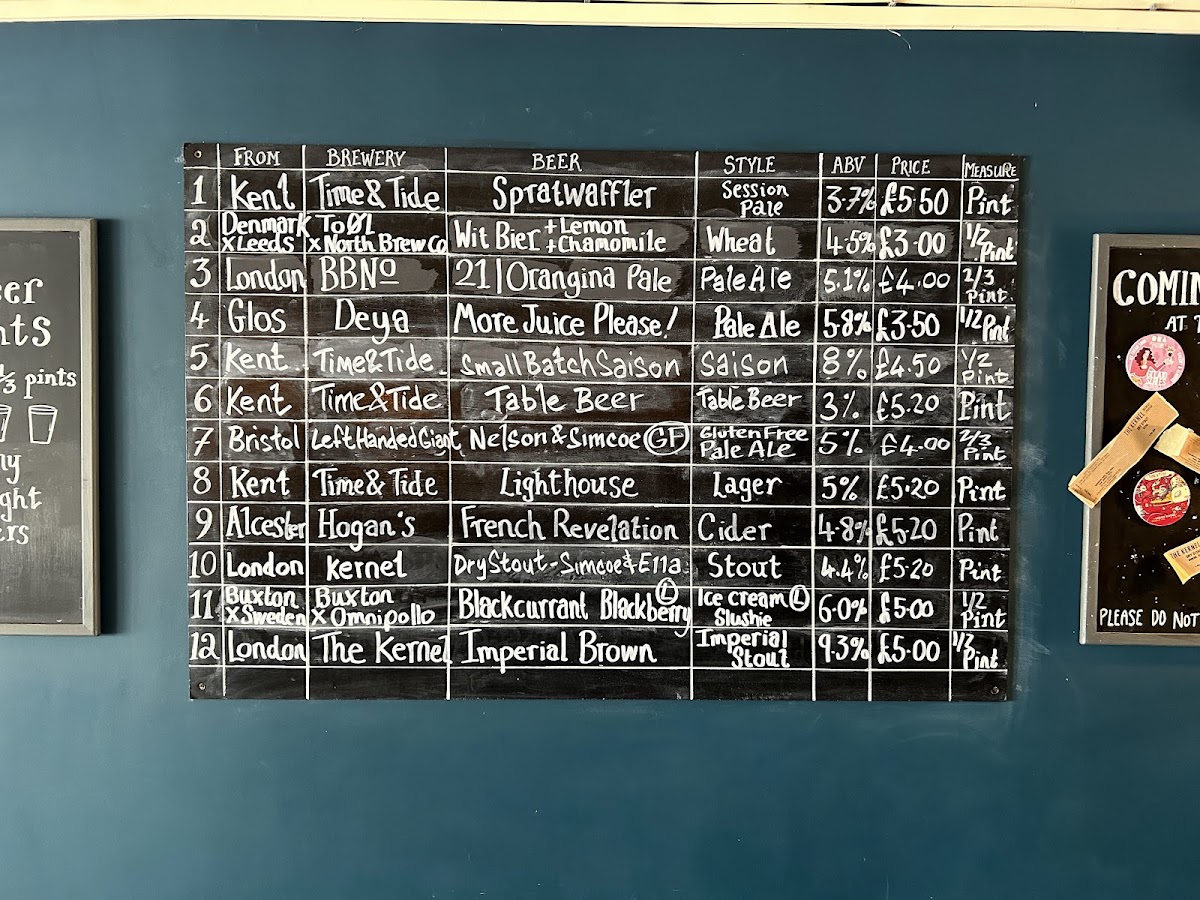 FROM BREWERY BEER STYLE ABV PRICE MEASURE
1 Kent Time & Tide Spratwaffler Session Pale 3.7% £5.50 Pint
2 Denmark x Leeds To Øl x North Brew Co Wit Bier + Lemon + Chamomile Wheat 4.5% £3.00 1/2 Pint
3 London BBNo 21 | Orangina Pale Pale Ale 5.1% £4.00 2/3 Pint
4 Glos Deya More Juice Please! Pale Ale 5.8% £3.50 1/2 Pint
5 Kent Time & Tide Small Batch Saison Saison 8% £4.50 1/2 Pint
6 Kent Time & Tide Table Beer Table Beer 3% £5.20 Pint
7 Bristol Left Handed Giant Nelson & Simcoe GF Gluten Free Pale Ale 5% £4.00 2/3 Pint
8 Kent Time & Tide Lighthouse Lager 5% £5.20 Pint
9 Alcester Hogan's French Revelation Cider 4.8% £5.20 Pint
10 London Kernel Dry Stout - Simcoe & Ella Stout 4.4% £5.20 Pint
11 Buxton x Sweden Buxton x Omnipollo Blackcurrant Blackberry L Ice cream L Slushie 6.0% £5.00 1/2 Pint
12 London The Kernel Imperial Brown Imperial Stout 9.3% £5.00 1/2 Pint
/3 pints
COMIN
AT
PLEASE DO NOT